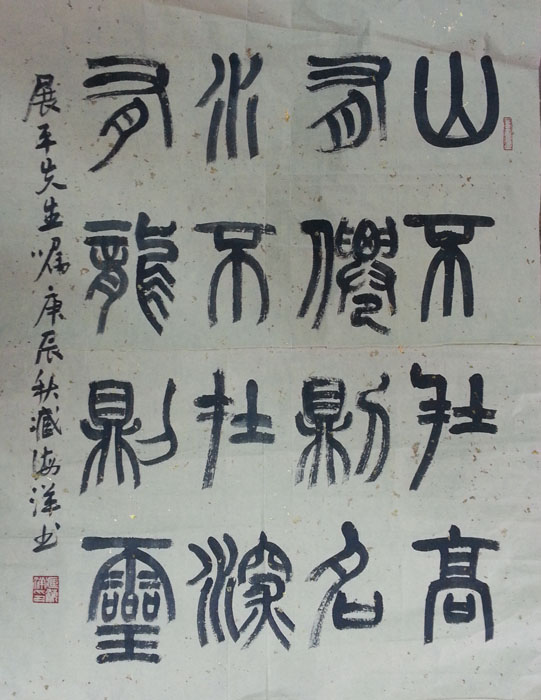 山不在高
有僊則名
水不在深
有龍則靈
展平先生嘱庚辰秋臧海洋书